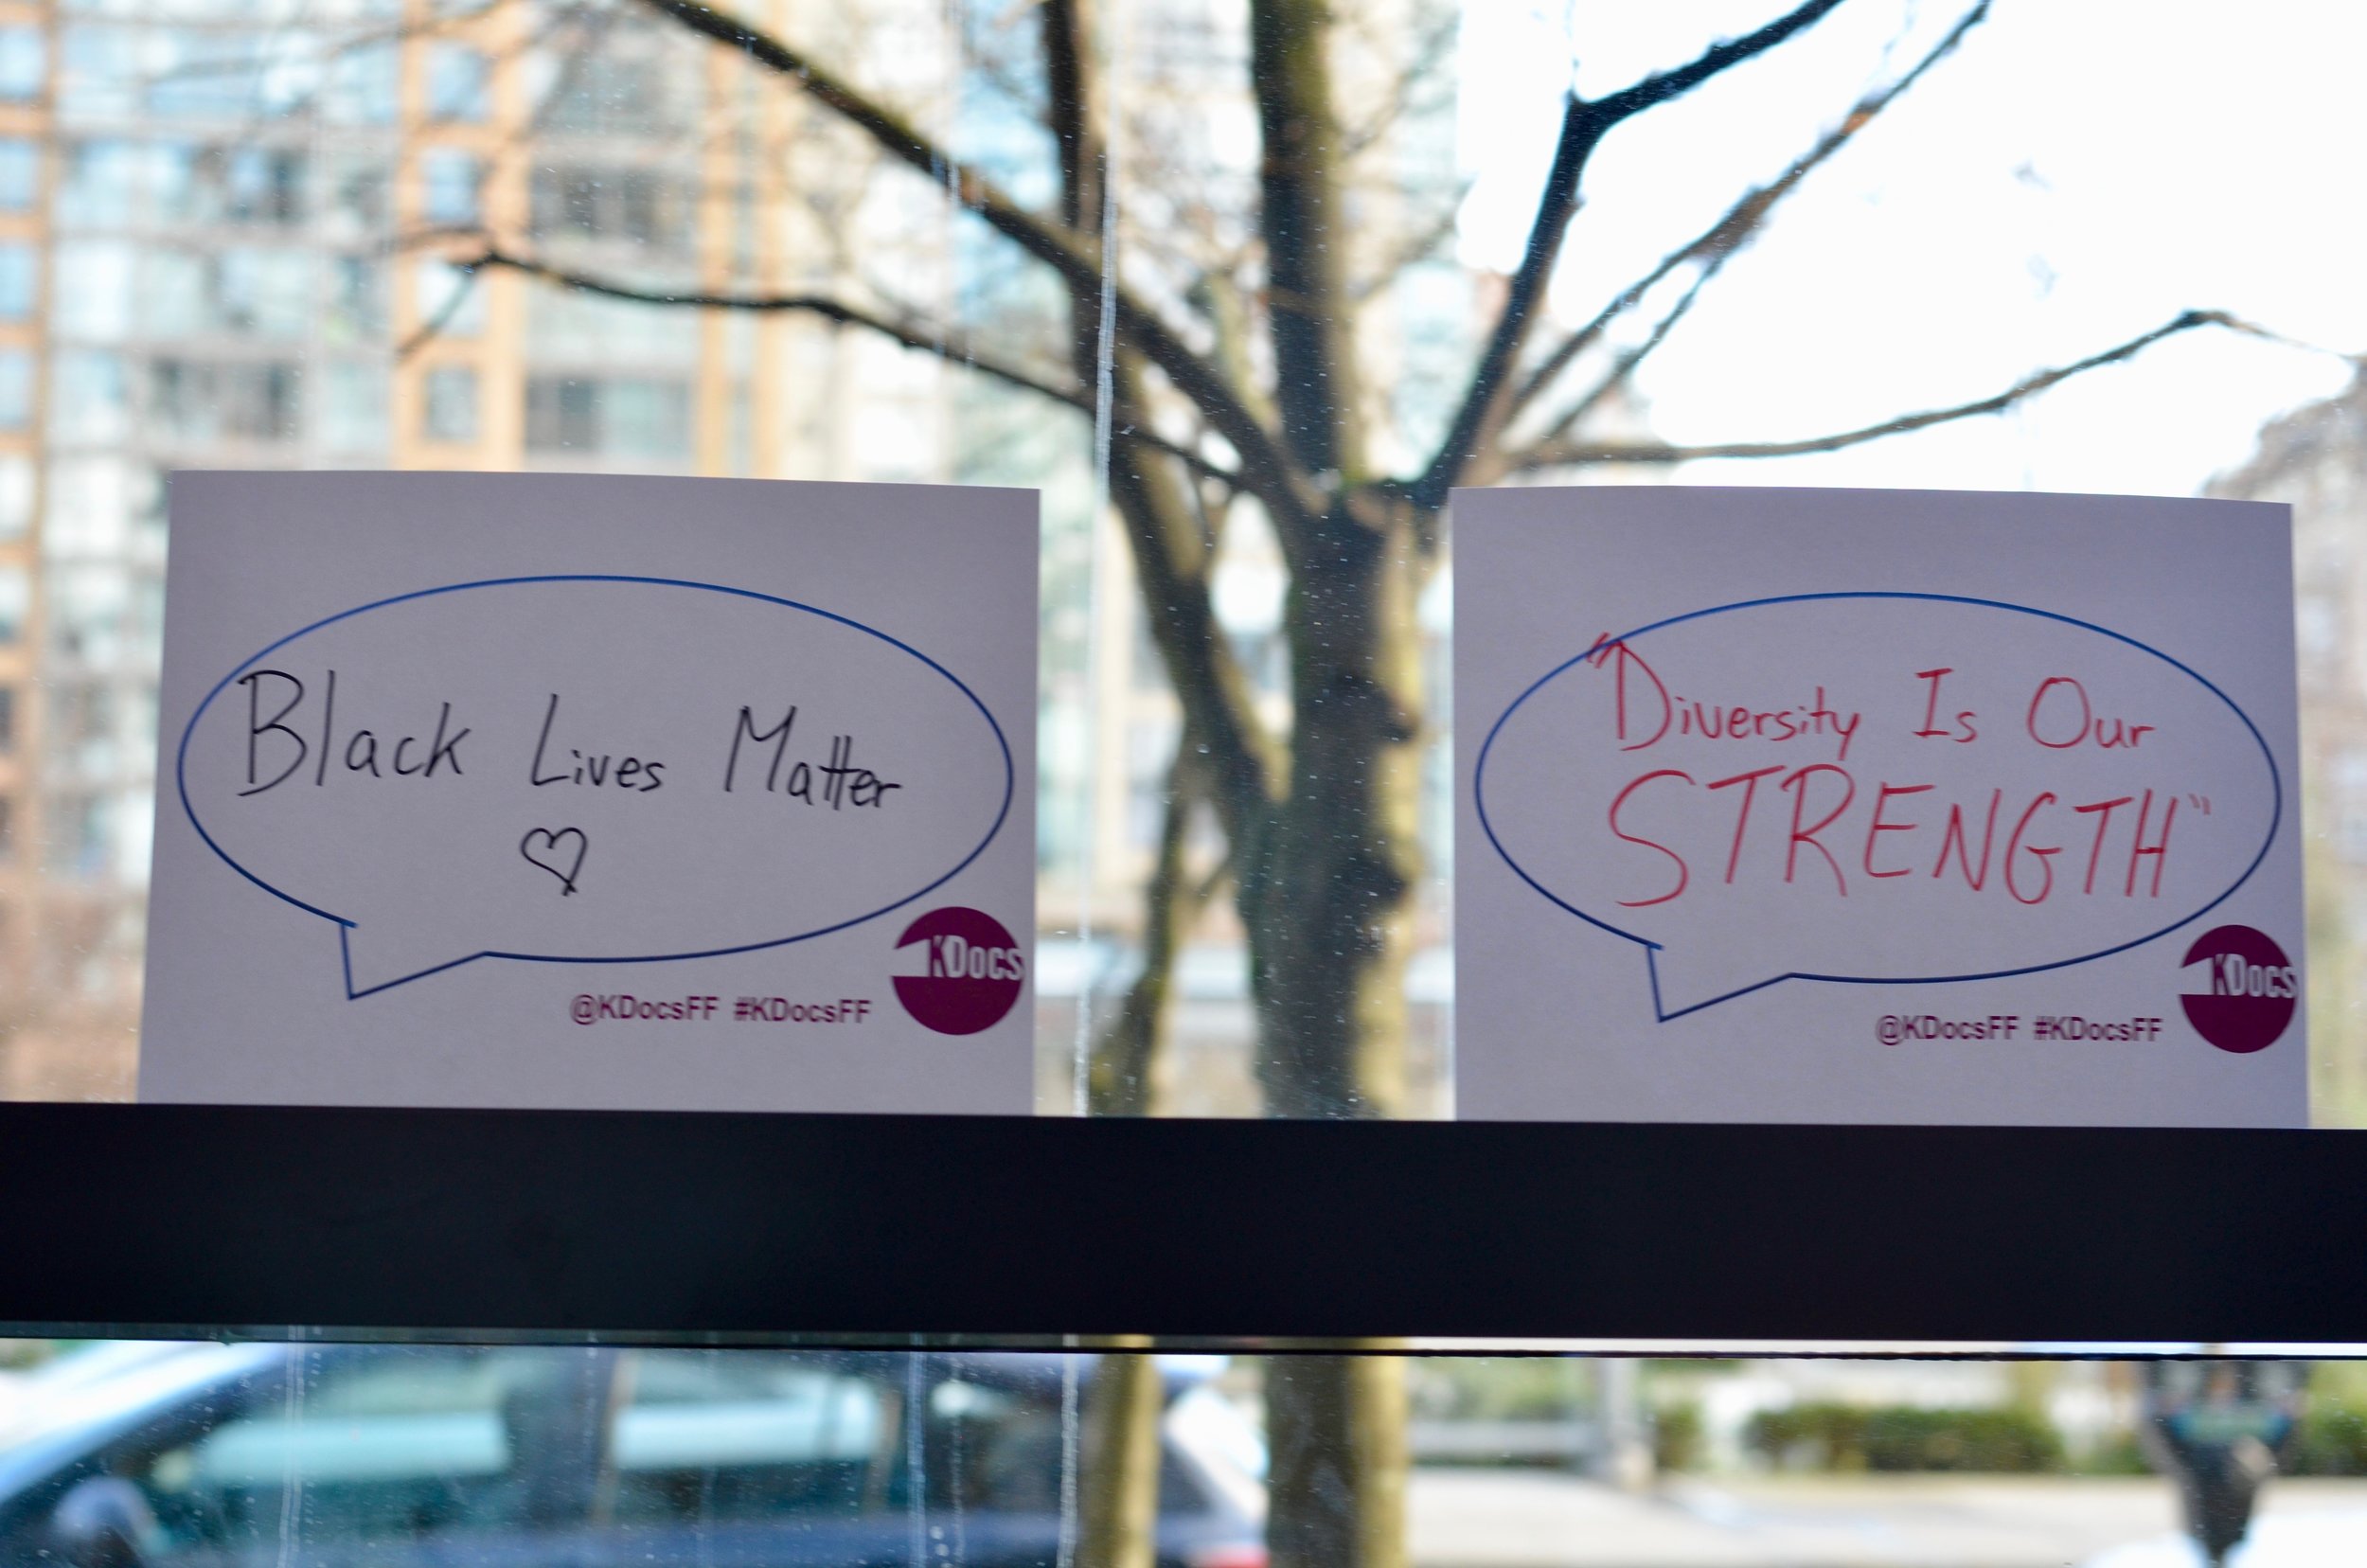 Black Lives Matter
♡
KDocs
@KDocsFF #KDocsFF
"Diversity Is Our
STRENGTH"
KDocs
@KDocsFF #KDocsFF